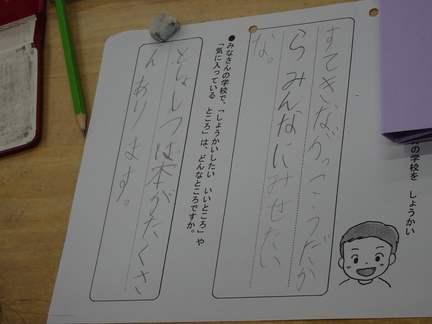 の学校を しょうかい
すてきながっこうだか
らみんなにみせたい
な。
●みなさんの学校で、「しょうかいしたい いいところ」や
「気に入っている ところ」は、どんなところですか。
としょしつは本がたくさ
んあります。